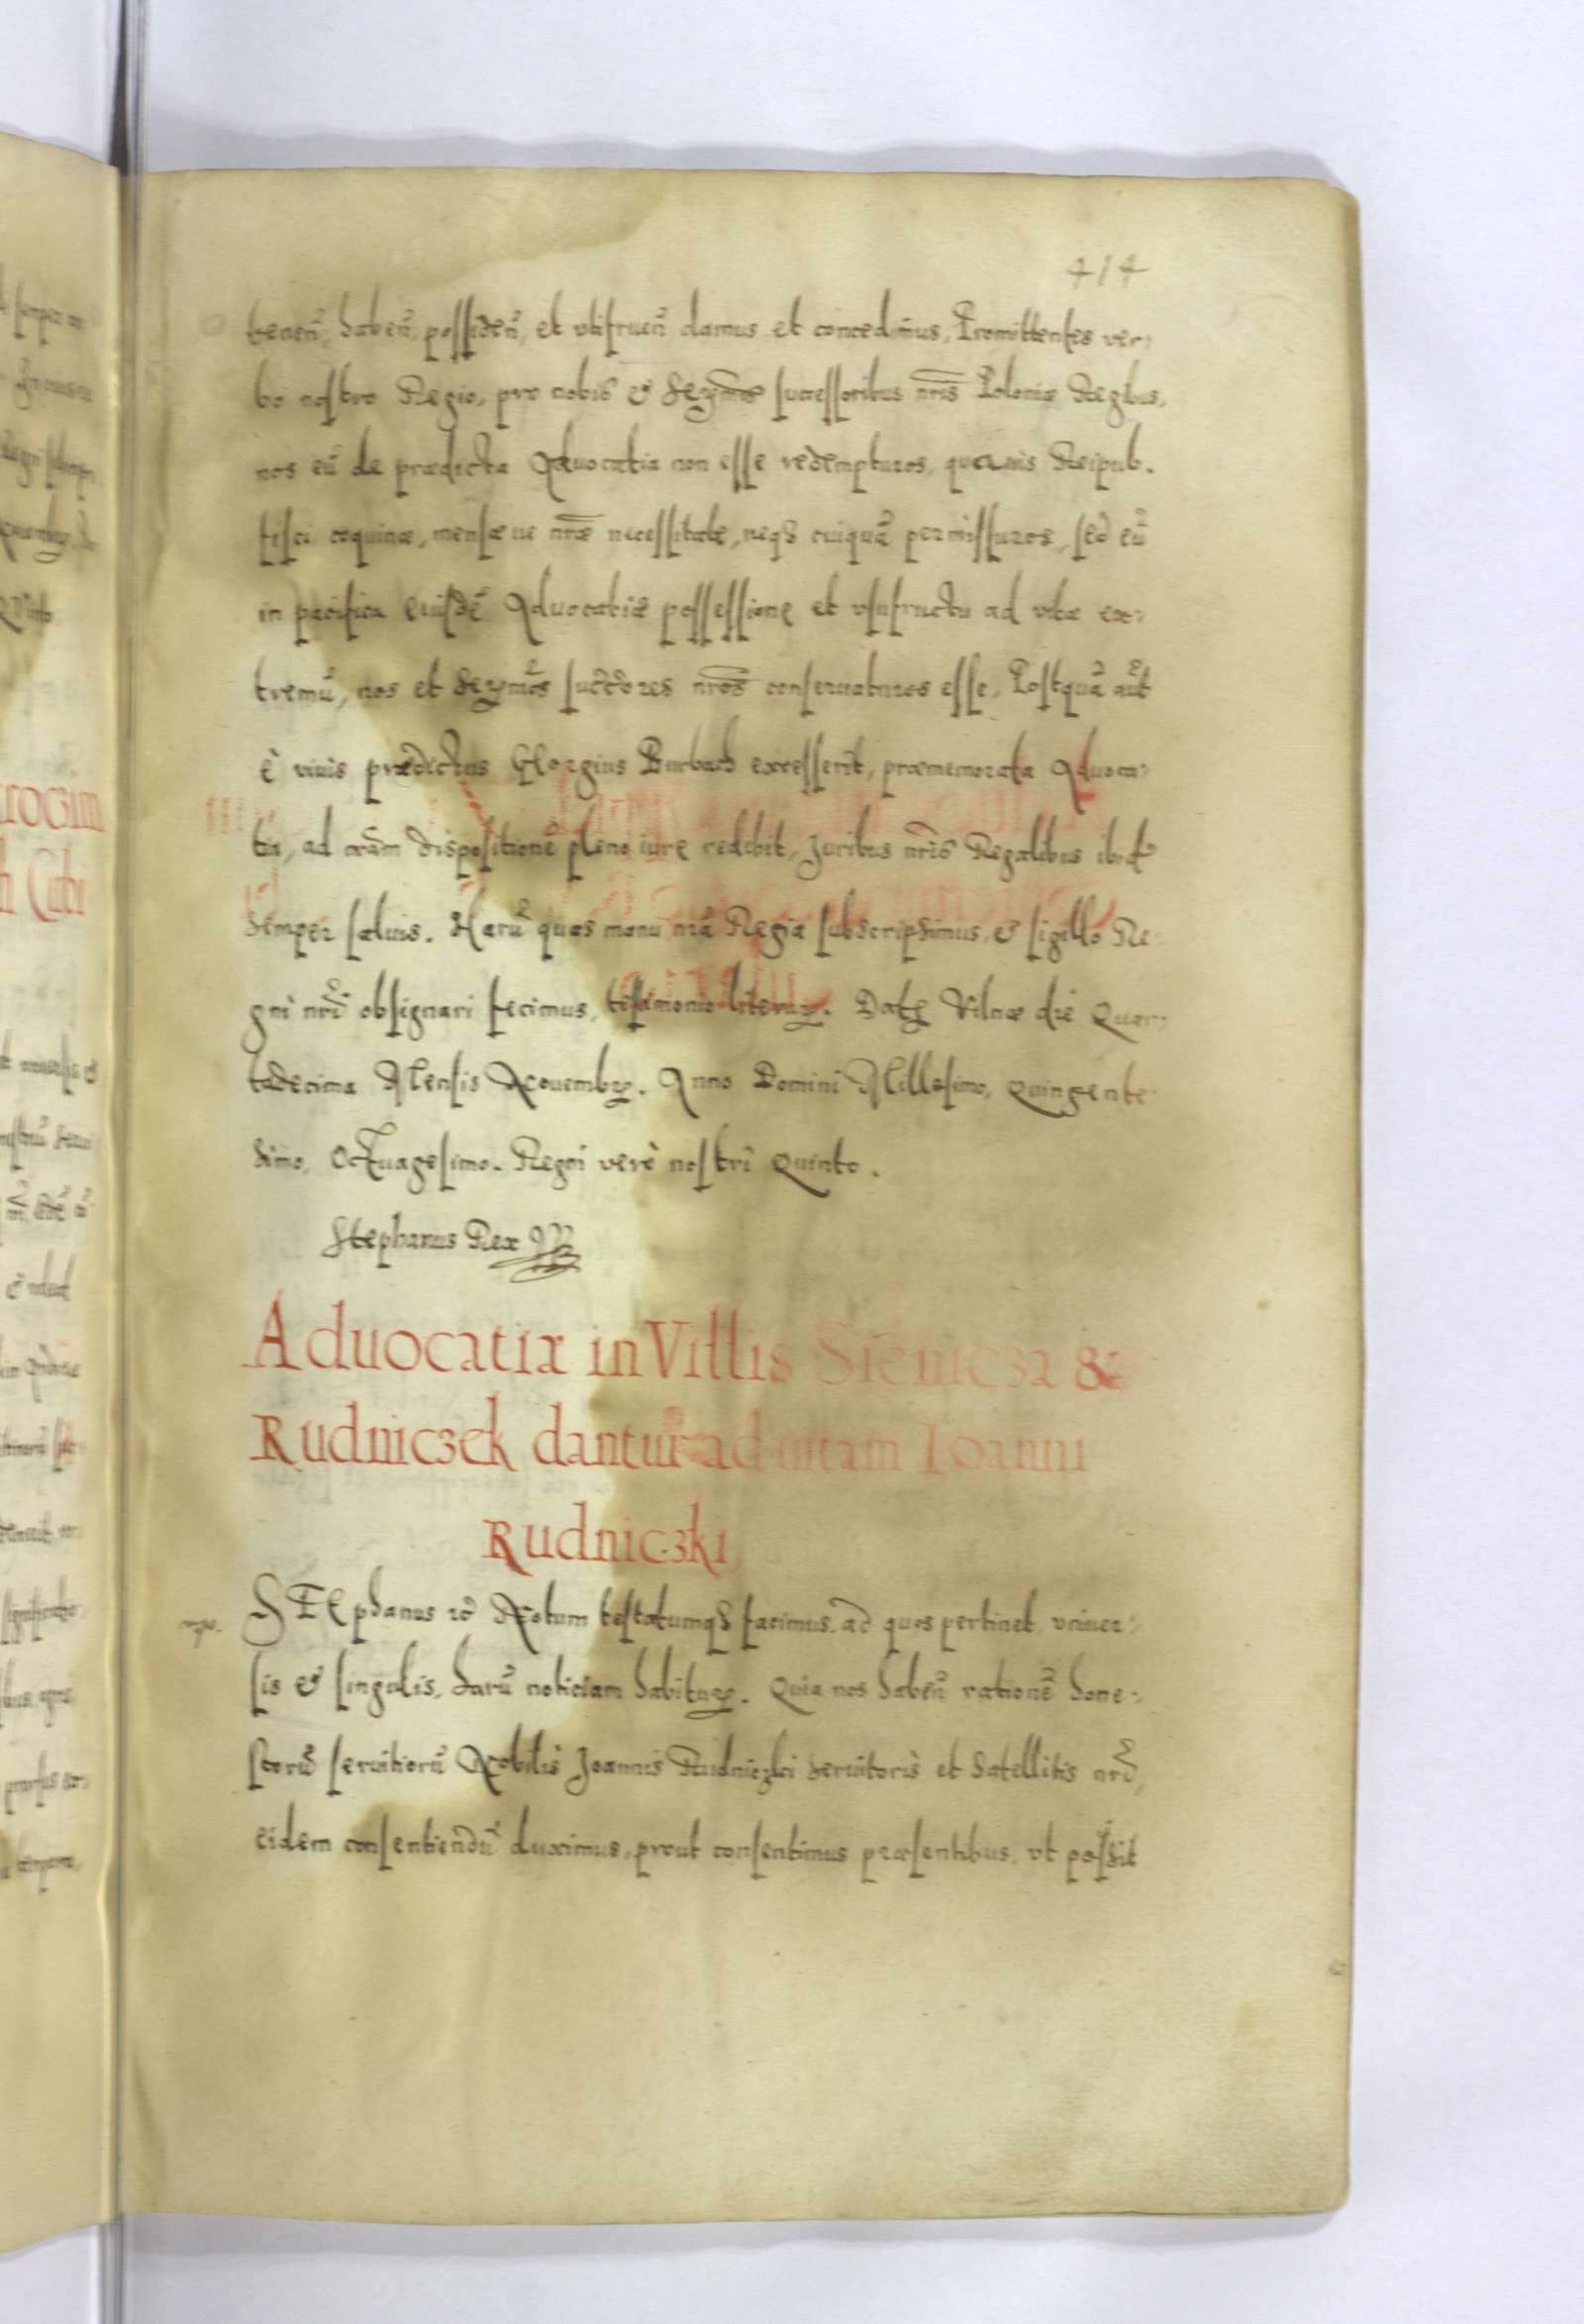 414
tenen̄, haben̄, possiden̄, et vtifruen̄ damus et concedimus, Promittentes ver-
bo nostro Regio, pro nobis & Serm̃is successoribus nr̃is Poloniæ Regibus,
nos eũ de prædicta Aduocatia non esse redempturos, quauis Reipub.
fisci coquinæ, mensæ ue nr̃æ necessitate, neq3 cuiquã permissuros, sed eũ
in pacifica eiusdẽ Aduocatiæ possessione et vsufructu ad vitæ ex-
tremũ, nos et Serm̃os succ̃ores nr̃os conseruaturos esse, Postquã aũt
è viuis prædictus Georgius Burbach excesserit, præmemorata Aduoca-
tia, ad nr̃am dispositionẽ pleno iure redibit, Juribus nr̃is Regalibus ibid̃
semper saluis. Harũ quas manu nr̃a Regia subscripsimus, & sigillo Re-
gni nr̃i obsignari fecimus, testimonio literaꝝ. Datꝭ Vilnæ die Quar-
tadecima Mensis Nouembꝝ. Anno Domini Millesimo, Quingente-
simo, Octuagesimo. Regni verò nostri Quinto.
Stephanus Rex
Aduocatiæ in Villis Sienicza &
Rudniczek dantur ad uitam Ioanni
Rudniczki
STEphanus &c̃ Notum testatumq3 facimus, ad quos pertinet vniuer-
sis & singulis, harũ noticiam habituꝝ. Quia nos haben̄ rationẽ hone-
storũ seruitiorũ Nobilis Joannis Rudniczki seruitoris et Satellitis nr̃i,
eidem consentiendũ duximus, prout consentimus præsentibus, vt possit